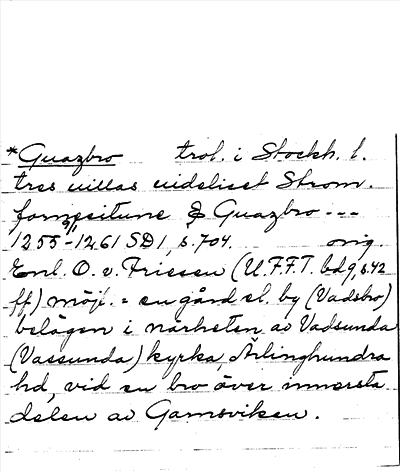 *Guazbro trol. i Stockh. l.
tres uillas uidelicet Strom.
forn, situne & Guazbro ---
1255 9/11 - 1261 SD 1, s. 704. orig.
Enl. O. v. Friesen (U.F.F.T. bd 9, s. 42
ff) möjl. = en gård el. by (Vadsbro)
belägen i närheten av Vadsunda
(Vassunda) kyrka, Ärlinghundra
hd, vid en bro över innersta
delen av Garnsviken.